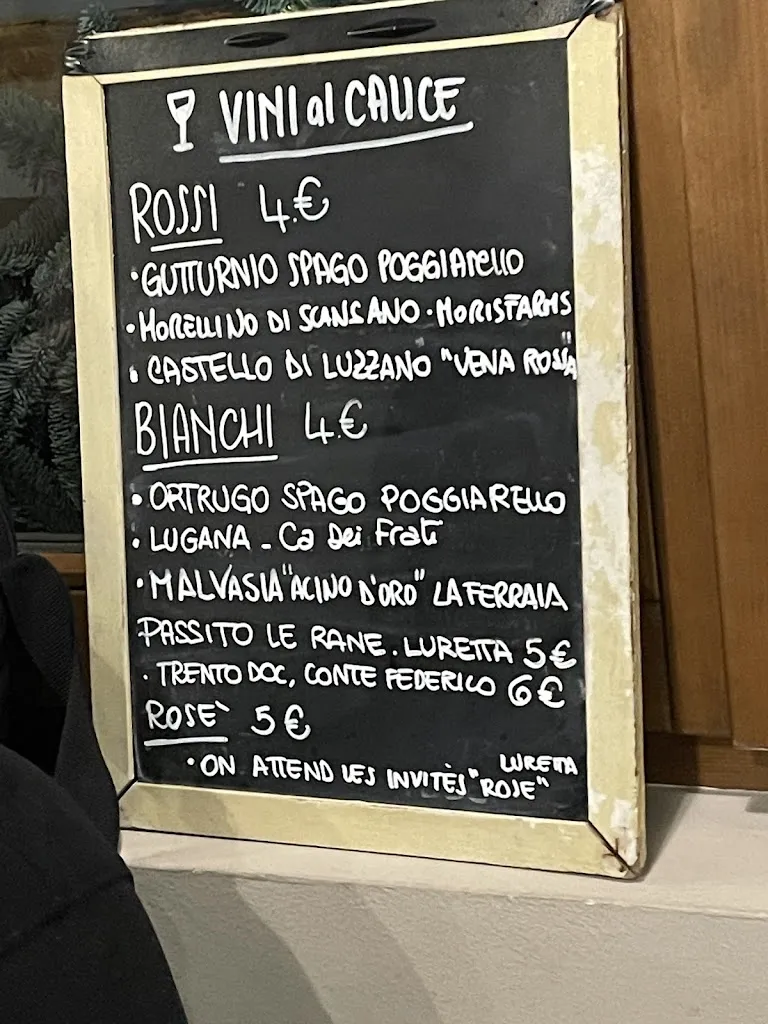 VINI al CALICE
ROSSI 4.€
• GUTTURNIO SPAGO POGGIARELLO
• MORELLINO DI SCANSANO • MORISFARMS
• CASTELLO DI LUZZANO "VENA ROSSA"
BIANCHI 4.€
• ORTRUGO SPAGO POGGIARELLO
• LUGANA - Ca Dei Frati
• MALVASIA "ACINO D'ORO" LA FERRAIA
PASSITO LE RANE. LURETTA 5€
• TRENTO DOC, CONTE FEDERICO 6€
ROSE` 5€
• ON ATTEND LES INVITÈS "ROSE" LURETTA